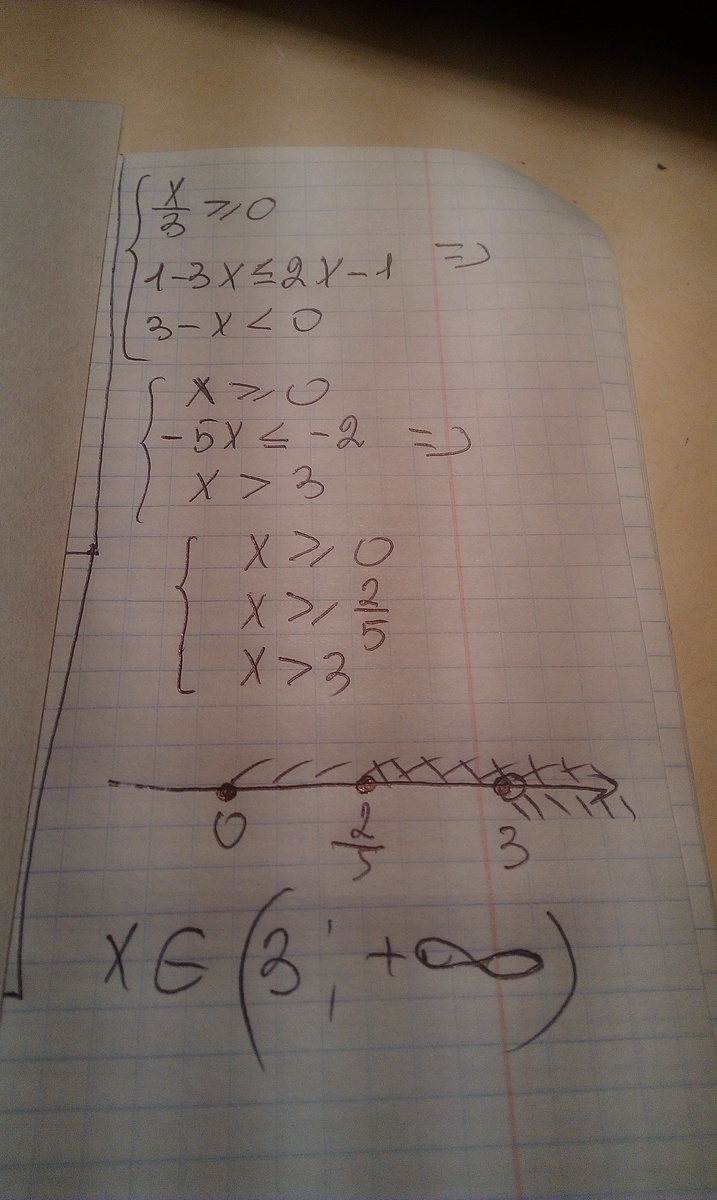 x/3 ⩾ 0
1-3x ≤ 2x-1 =>
3-x < 0
x ⩾ 0
-5x ≤ -2 =>
x > 3
x ⩾ 0
x ⩾ 2/5
x > 3
0 2/5 3
x ∈ (3; +∞)